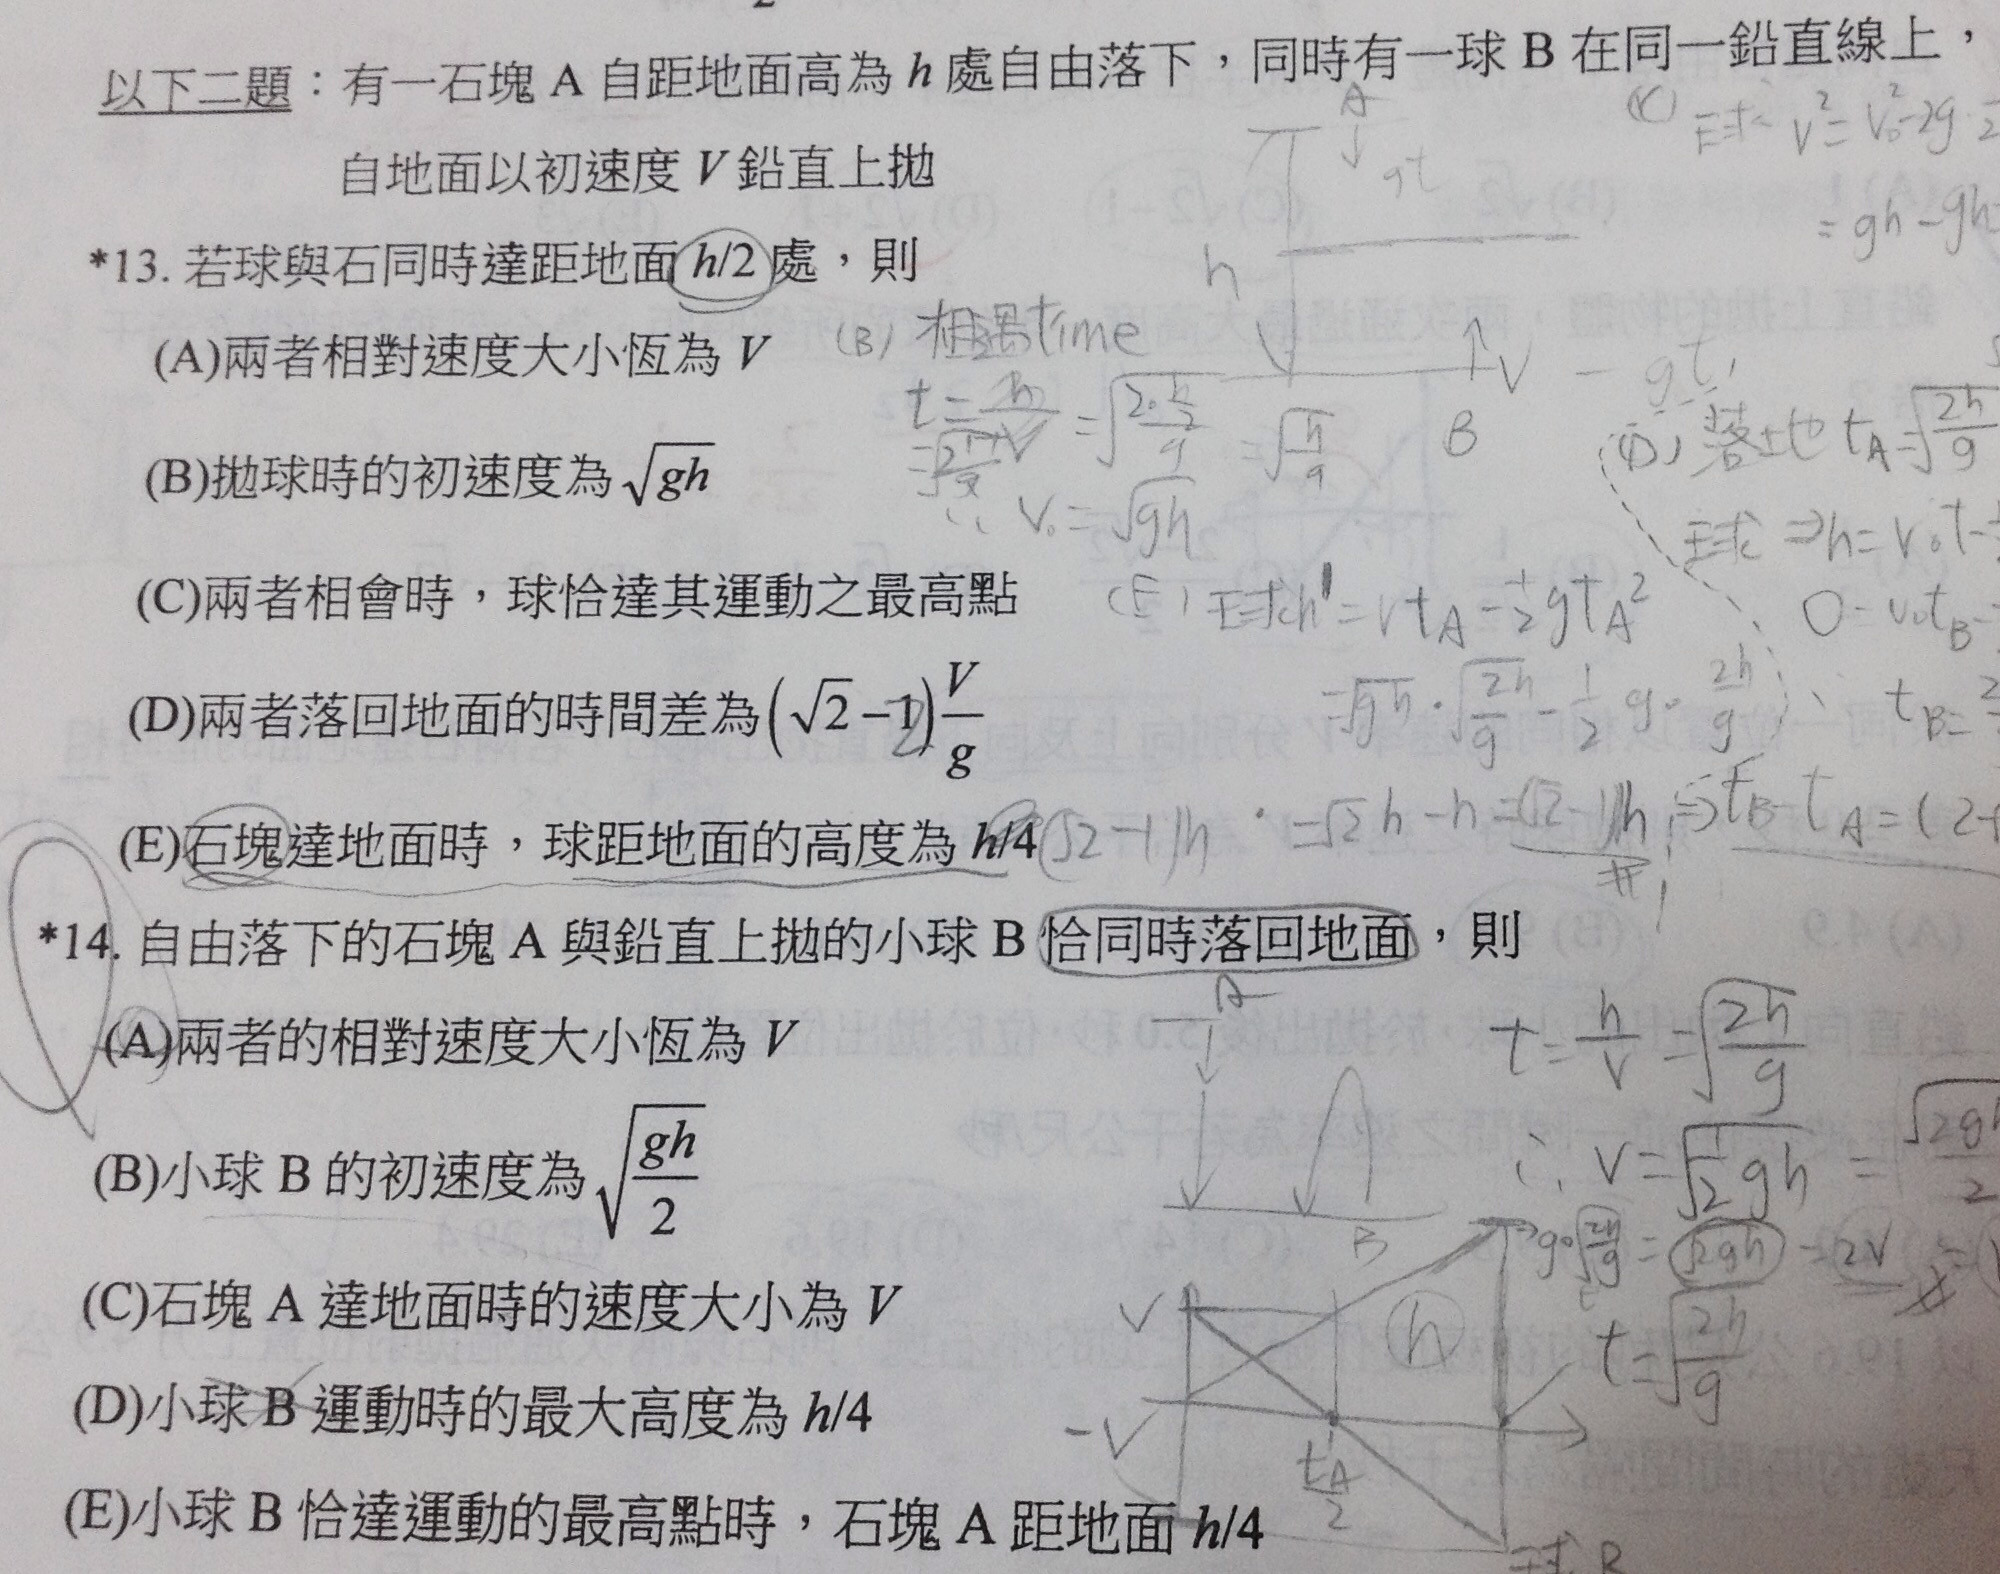 以下二題：有一石塊 A 自距地面高為 h 處自由落下，同時有一球 B 在同一鉛直線上，
自地面以初速度 V 鉛直上拋
*13. 若球與石同時達距地面 h/2 處，則
(A)兩者相對速度大小恆為 V
(B)拋球時的初速度為 √gh
(C)兩者相會時，球恰達其運動之最高點
(D)兩者落回地面的時間差為 (√2 −1) V/g
(E)石塊達地面時，球距地面的高度為 h/4 (√2−1)h
*14. 自由落下的石塊 A 與鉛直上拋的小球 B 恰同時落回地面，則
(A)兩者的相對速度大小恆為 V
(B)小球 B 的初速度為 √(gh/2)
(C)石塊 A 達地面時的速度大小為 V
(D)小球 B 運動時的最大高度為 h/4
(E)小球 B 恰達運動的最高點時，石塊 A 距地面 h/4
A
gt
h
V
B
(B) 相遇time
∴ V₀ = √gh
(D) 落地 t_A = √(2h/g)
(E) 球h' = Vt_A − 1/2 gt_A²
= √gh · √(2h/g) − 1/2 g · 2h/g
= √2 h − h = (√2−1)h
A
B
t = h/V = √(2h/g)
∴ V = √(1/2 gh)
V
-V
h
t_A/2
t = √(2h/g)
球 B